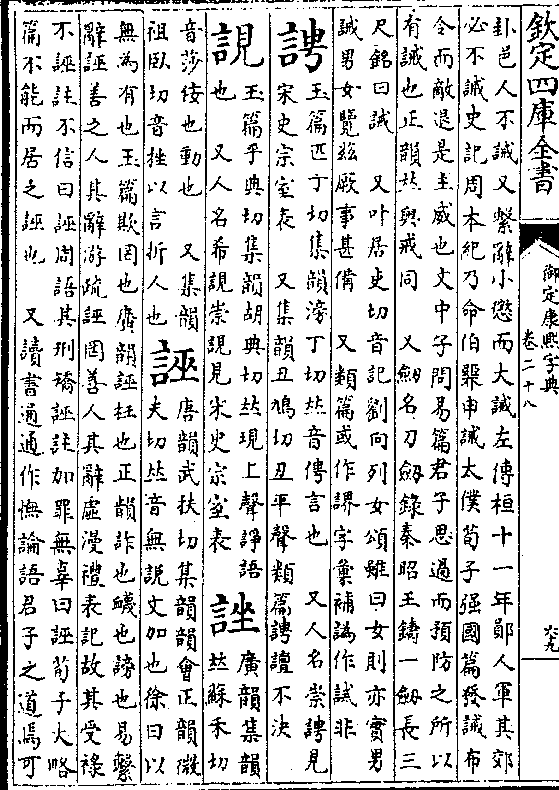 欽定四庫全書
御定康熙字典
卷二十八
六九
卦邑人不誡又繫辭小懲而大誡左傳桓十一年鄖人軍其郊
必不誡史記周本紀乃命伯臩申誡太僕荀子强國篇發誡布
令而敵退是主威也文中子問易篇君子思過而預防之所以
有誡也正韻𠀤與戒同 又劔名刀劔錄秦昭王鑄一劔長三
尺銘曰誡 又叶居吏切音記劉向列女頌雖曰女則亦實男
誡男女覽玆厥事甚備 又類篇或作諽字彙補譌作試非
䛣 玉篇匹丁切集韻滂丁切𠀤音俜言也 又人名崇䛣見
宋史宗室表 又集韻丑鳩切丑平聲類篇䛣譠不決
誢 玉篇乎典切集韻胡典切𠀤現上聲諍語
也 又人名希誢崇誢見宋史宗室表
誜 廣韻集韻
𠀤蘇禾切
音莎佞也動也 又集韻
祖臥切音挫以言折人也
誣 唐韻武扶切集韻韻會正韻微
夫切𠀤音無說文加也徐曰以
無為有也玉篇欺罔也廣韻誣枉也正韻詐也衊也謗也易繫
辭誣善之人其辭游疏誣罔善人其辭虛漫禮表記故其受祿
不誣註不信曰誣周語其刑矯誣註加罪無辜曰誣荀子大略
篇不能而居之誣也 又讀書通通作憮論語君子之道焉可